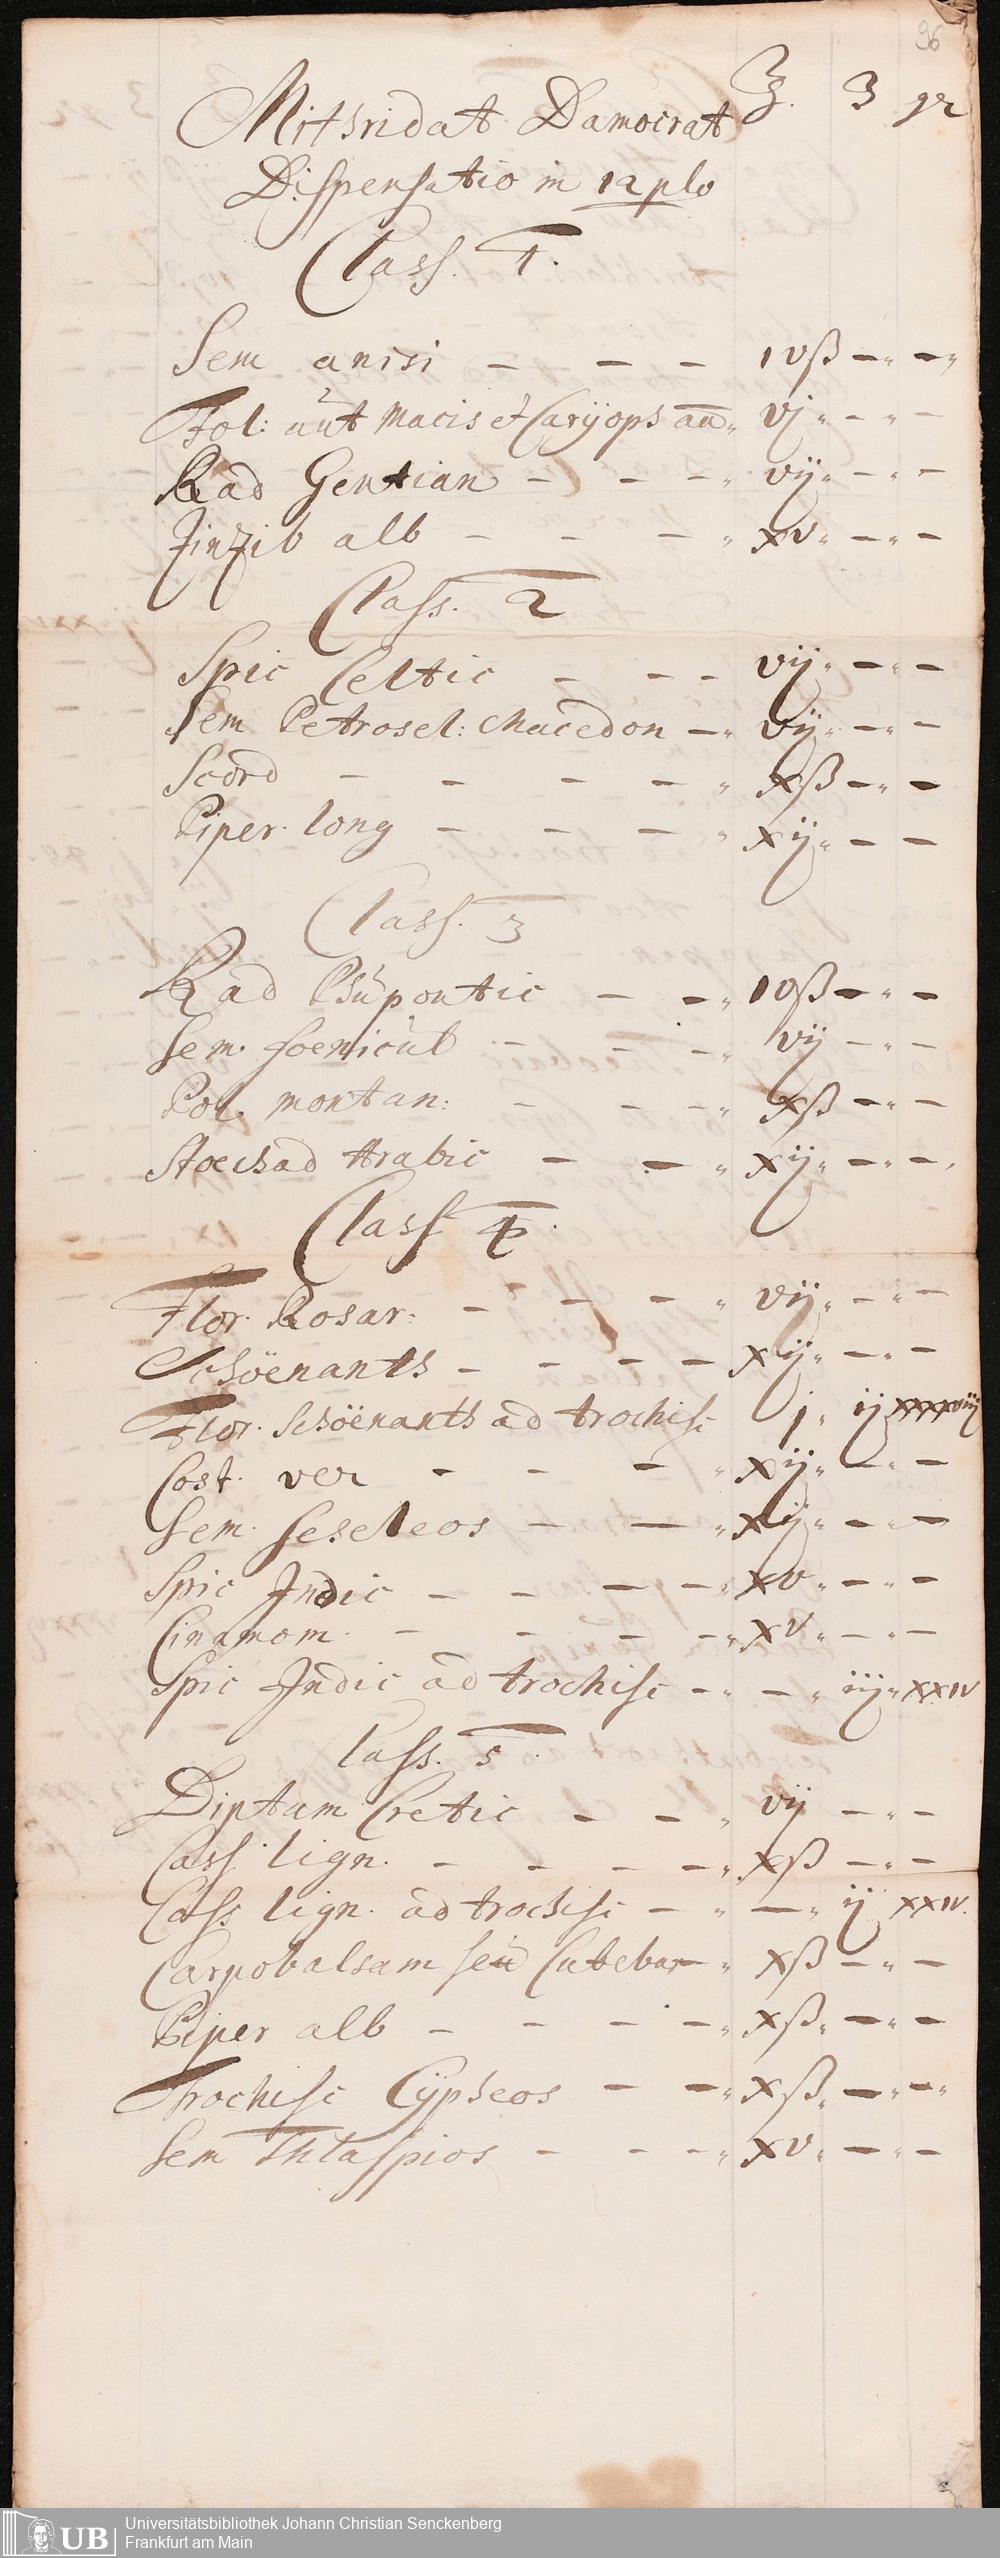 96
Mithridat Damocrat ℥. ʒ gr
Dispensatio in 12plo
Class. 1.
Sem anisi — — — ivß —" —"
Fol: aut Macis et Caryops an" vj" —" —
Rad Gentian — — —" vij" —" —
Zinzib alb — — —" xv" —" —
Class. 2
Spic Celtic — — — vij" —" —
Sem Petrosel: Macedon —" vij" —" —
Scord — — — —" xß —" —
Piper. long — — —" xij" — —
Class. 3
Rad Rhupontic — —" ivß —" —
Sem. foenicul — — —" vij —" —
Pol. montan: — — —" xß —" —
Stoechad Arabic — —" xij" —" —
Class 4.
Flor. Rosar: — — —" vij" —" —
Schöenanth — — — — xij" —" —
Flor. Schöenanth ad trochisc j" ij xxxxviij
Cost. ver — — —" xij" —" —
Sem. Seseleos — —" xij" —" —
Spic Indic — — — —" xv" —" —
Cinamom. — — — —" xv" —" —
Spic Indic ad trochisc —" —" iij" xxiv
Class. 5.
Diptam Cretic — —" vij —" —
Cass lign. — — — —" xß —" —
Cass lign. ad trochisc —" —" ij xxiv.
Carpobalsam seu Cubebar —" xß —" —
Piper alb — — — —" xß" —" —
Trochisc Cypheos — —" xß" —" —"
Sem Thlaspios — — —" xv" —" —
UB
Universitätsbibliothek Johann Christian Senckenberg
Frankfurt am Main